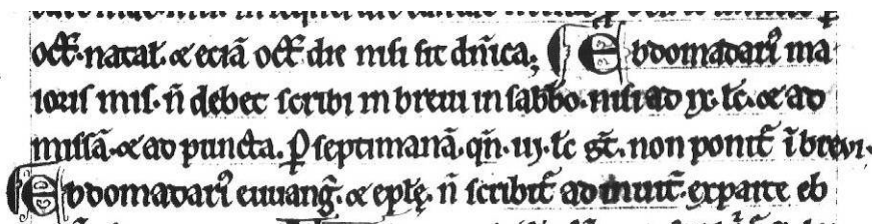 oct̄. natal̄. ⁊ eciā oct̄ die nisi sit dn̄ica; Ebdomadari9 ma
ioris mis. n̄ debet scribi in breui in sabb̄o. nisi ad ix. lc̄. ⁊ ad
missā. ⁊ ad puncta. P septimanā. qn̄. iij. lc̄ st̄. non ponit᷑ ī brevi.
Ebdomadari9 euuanḡ. ⁊ epl̄ę. n̄ scribit᷑ ad ex parte eb